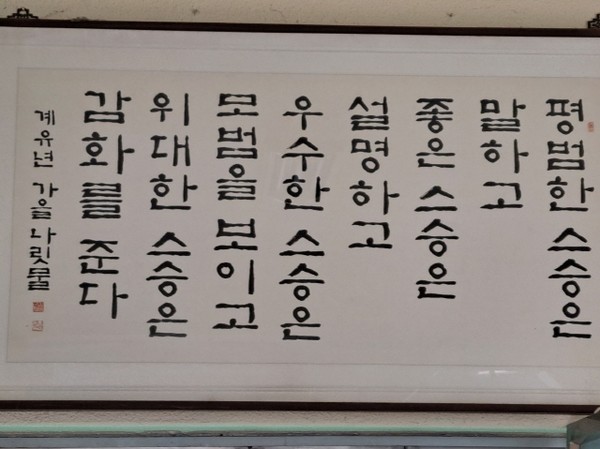 평범한 스승은
말하고
좋은 스승은
설명하고
우수한 스승은
모범을 보이고
위대한 스승은
감화를 준다
계유년 가을 나릿물